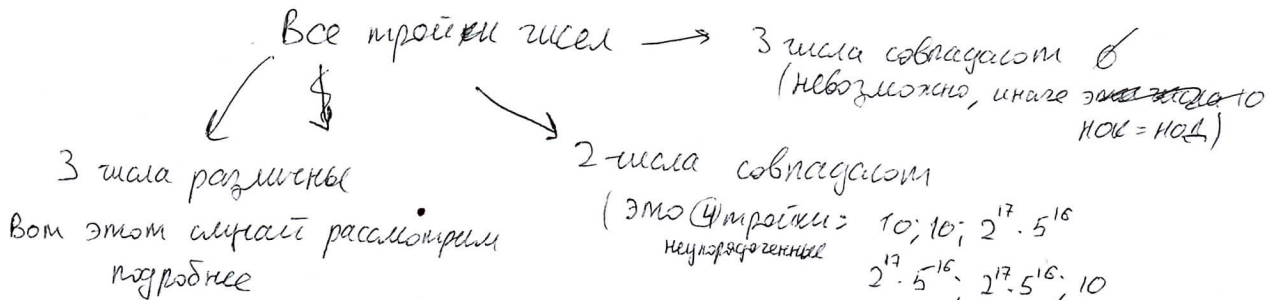 Все тройки чисел → 3 числа совпадают
(невозможно, иначе
НОК = НОД)
3 числа различные
Вот этот случай рассмотрим
подробнее
2 числа совпадают
(это 4 тройки:
неупорядоченные
10; 10; 2^17 · 5^16
2^17 · 5^16; 2^17 · 5^16; 10